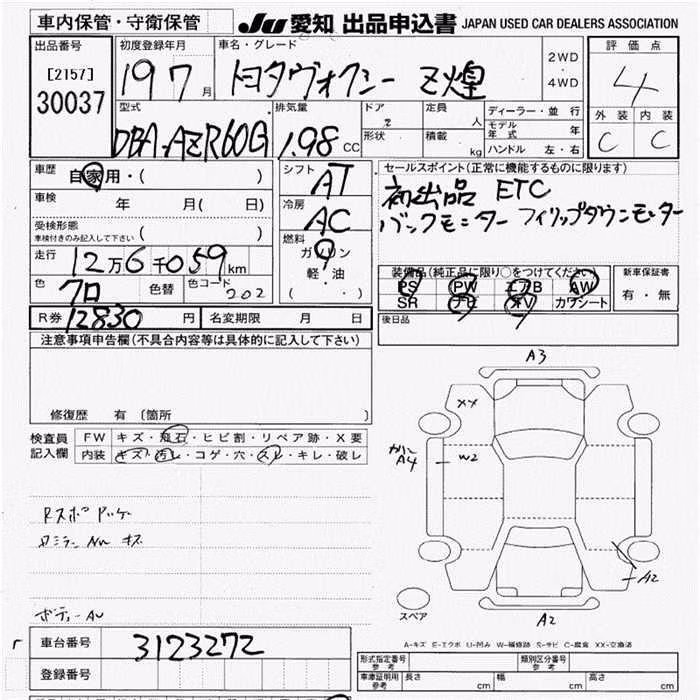 車内保管・守衛保管
JU 愛知 出品申込書 JAPAN USED CAR DEALERS ASSOCIATION
出品番号
[2157]
30037
初度登録年月
19 7 月
車名・グレード
トヨタヴォクシー Z煌
2WD
・
4WD
評価点
4
外装 内装
C C
型式
DBA-AZR60G
排気量
1.98 CC
ドア
定員 人
形状
積載 kg
ディーラー・並行
モデル年式 年
ハンドル 左・右
車歴
自家用・( )
車検 年 月( 日)
受検形態
車検付きのみ記入して下さい ( )
走行
12万6千059km
色
クロ
色替
色コード
202
シフト
AT
冷房
AC
燃料
ガソリン
軽・油
( ・ )
セールスポイント(正常に機能するものに限ります)
初出品 ETC
バックモニター フィリップダウンモニター
装備品(純正品に限り○をつけてください)
PS PW エアB AW
SR ナビ TV カワシート
新車保証書
有・無
R券 12830 円
名変期限 月 日
後日品
注意事項申告欄(不具合内容等は具体的に記入して下さい)
修復歴 有 〔箇所 〕
検査員
記入欄
FW キズ・飛石・ヒビ割・リペア跡・X要
内装 キズ・汚レ・コゲ・穴・スレ・キレ・破レ
A3
XX
A4
W2
A2
スペア
A2
A-キズ E-エクボ U-凹み W-補修跡 S-サビ C-腐食 XX-交換済
車台番号
3123272
登録番号
形式指定番号
参考
類別区分番号
参考
車庫証明用
参考
長さ cm
幅 cm
高さ cm